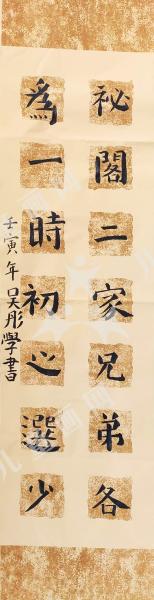 祕閣二家兄弟各
為一時初之選少
壬寅年吴彤學書